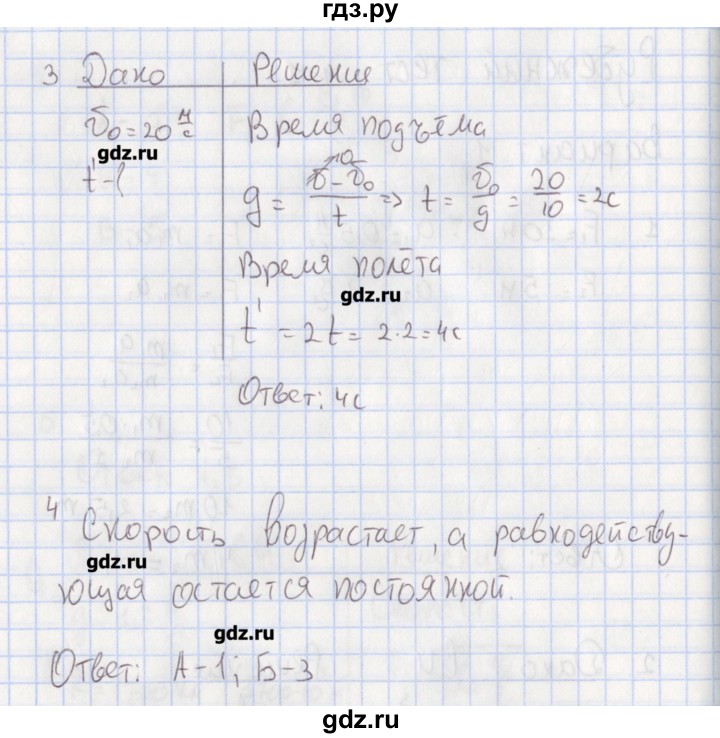 гдз.ру
3 Дано Решение
v₀ = 20 м/с Время подъёма
gdz.ru
t' - ?
g = (v - v₀)/t => t = v₀/g = 20/10 = 2с
Время полёта
gdz.ru
t' = 2t = 2·2 = 4с
Ответ: 4с
4 Скорость возрастает, а равнодейству-
gdz.ru
ющая остается постоянной.
gdz.ru
Ответ: А-1; Б-3
gdz.ru